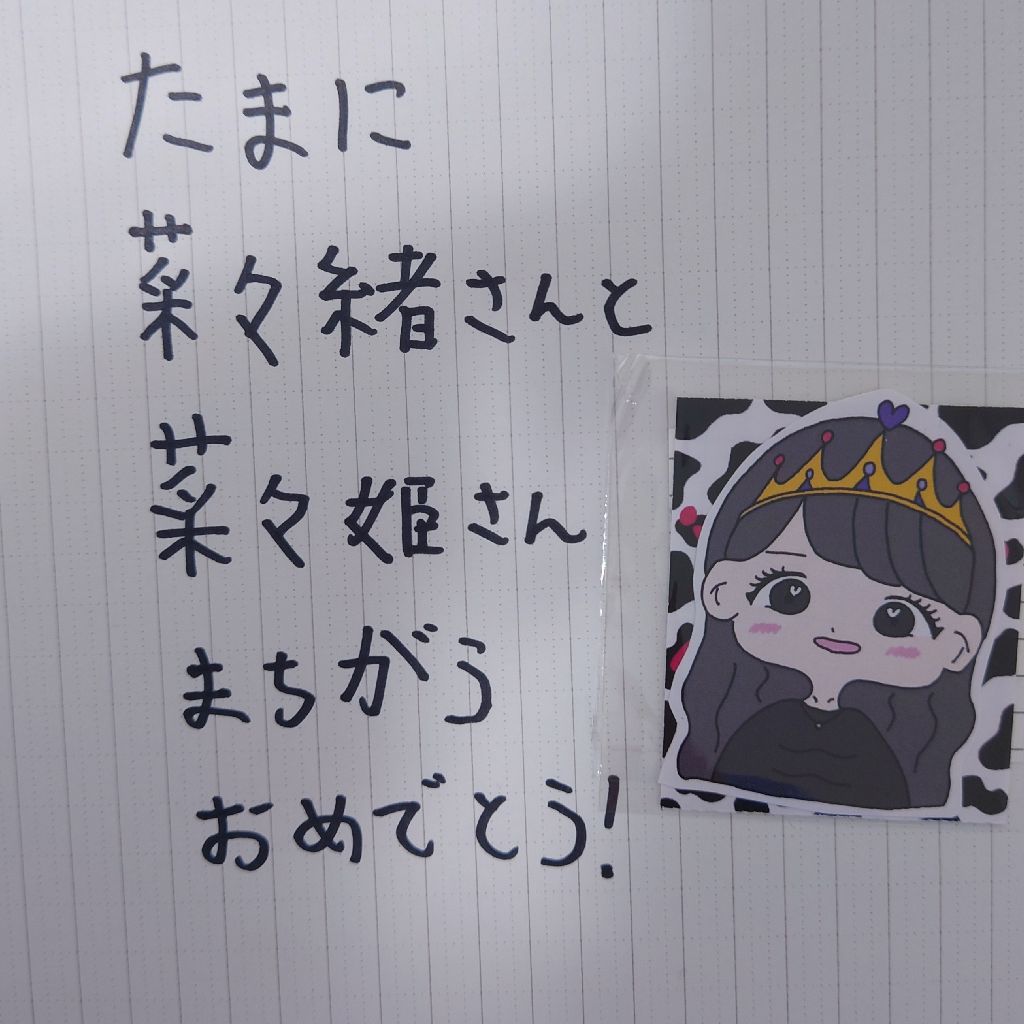 たまに
菜々緒さんと
菜々姫さん
まちがう
おめでとう!